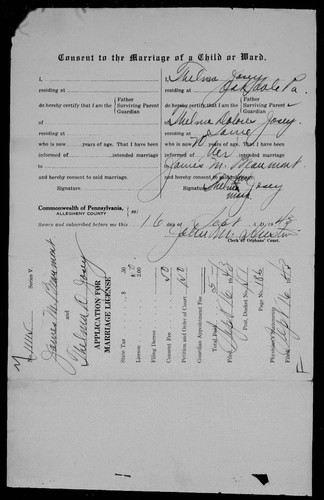 Consent to the Marriage of a Child or Ward.
I, I, Thelma Josey
residing at residing at Oakdale Pa.
do hereby certify that I am the Father Surviving Parent Guardian do hereby certify that I am the Father Surviving Parent Guardian
of of Thelma Dolores Josey
residing at residing at Same
who is now years of age. That I have been who is now years of age. That I have been
informed of intended marriage informed of her intended marriage
to to James M. Beaumont
and hereby consent to said marriage. and hereby consent to said marriage.
Signature. Signature. Thelma Josey
Commonwealth of Pennsylvania,
ALLEGHENY COUNTY ss:
Sworn and subscribed before me this 16 day of Sept A.D. 1948
John M.
Clerk of Orphans' Court.
Series V.
No.
James M. Beaumont
and
Thelma D. Josey
APPLICATION FOR
MARRIAGE LICENSE
State Tax $ .50
License 2.00
Filing Decree
Consent Fee .50
Petition and Order of Court
Guardian Appointment Fee
Total Paid
Filed Sept 16 1948
Post. Docket No.
Page No. 186
Physician's
Filed Sept 16 1948